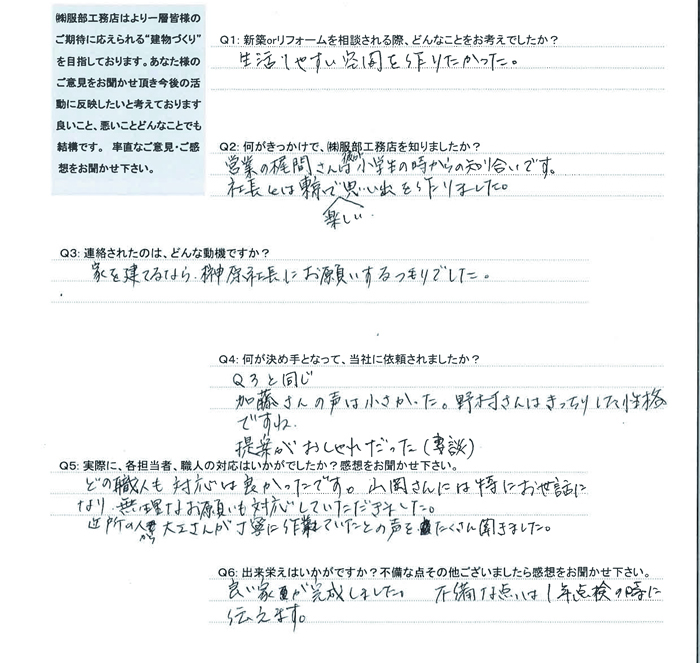 ㈱服部工務店はより一層皆様の
ご期待に応えられる“建物づくり”
を目指しております。あなた様の
ご意見をお聞かせ頂き今後の活
動に反映したいと考えております
良いこと、悪いことどんなことでも
結構です。 率直なご意見・ご感
想をお聞かせ下さい。
Q1: 新築orリフォームを相談される際、どんなことをお考えでしたか？
生活しやすい空間を作りたかった。
Q2: 何がきっかけで、㈱服部工務店を知りましたか？
営業の梶間さんは 小学生の時からの知り合いです。
社長とは で思い出を作りました。
楽しい
Q3: 連絡されたのは、どんな動機ですか？
家を建てるなら 榊原社長にお願いするつもりでした。
Q4: 何が決め手となって、当社に依頼されましたか？
Q3と同じ
加藤さんの声は小さかった。野村さんはきっちりした性格
ですね。
提案がおしゃれだった（ 談）
Q5: 実際に、各担当者、職人の対応はいかがでしたか？感想をお聞かせ下さい。
どの職人も対応は良かったです。山岡さんには特にお世話に
なり 無理なお願いも対応していただきました。
近所の人から 大工さんが丁寧に作業していたとの声をたくさん聞きました。
Q6: 出来栄えはいかがですか？不備な点その他ございましたら感想をお聞かせ下さい。
良い家が完成しました。 不備な点は1年点検の時に
伝えます。